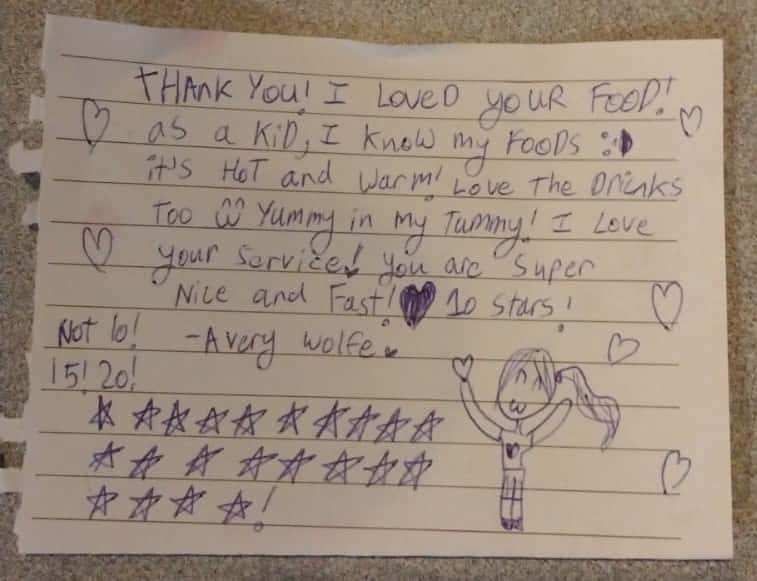 THANK YOU! I LOVED YOUR FOOD!
as a KiD, I Know my FOODS :D
it's HoT and Warm! Love The Drinks
Too ω Yummy in my Tummy! I Love
your Service! You are Super
Nice and Fast! 10 stars!
Not 10! -Avery Wolfe
15! 20!